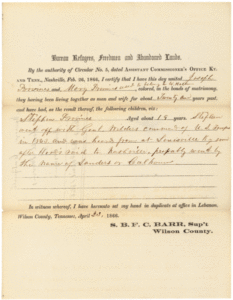 Bureau Refugees, Freedmen and Abandoned Lands.
By the authority of Circular No. 5, dated Assistant Commissioner's Office Ky.
and Tenn., Nashville, Feb. 26, 1866, I certify that I have this day united Joseph
Province and Mary Province colored, in the bonds of matrimony,
they having been living together as man and wife for about Twenty one years past,
and have had, as the result thereof, the following children, etc:
Stephen Province Aged about 18 Stephen
went off with Genl command of U.S. troops
in 1862 and was heard from at Louisville Ky soon
after Hood's raid to Nashville, probably went by
the name of Sanders or
In witness whereof, I have hereunto set my hand in duplicate at office in Lebanon,
Wilson County, Tennessee, April 23, 1866.
S. B. F. C. BARR, Sup't
Wilson County.